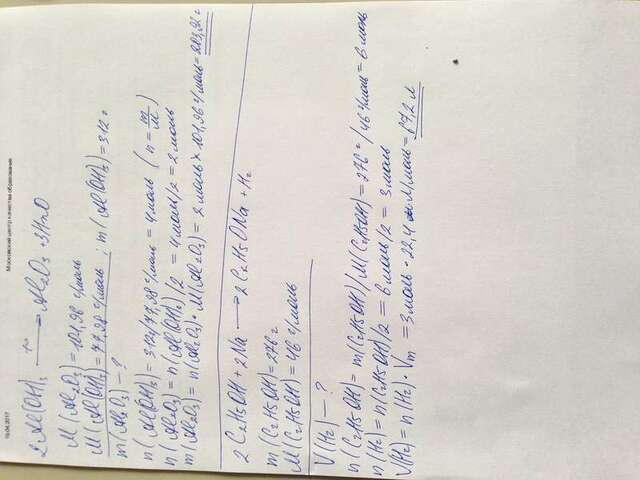 19.04.2017 Московский центр качества образования
2Al(OH)₃ —t°→ Al₂O₃ + 3H₂O
M(Al₂O₃) = 101,96 г/моль
M(Al(OH)₃) = 77,98 г/моль ; m(Al(OH)₃) = 312 г
m(Al₂O₃) — ?
n(Al(OH)₃) = 312г/77,98 г/моль = 4моль (n = m/M)
n(Al₂O₃) = n(Al(OH)₃)/2 = 4моль/2 = 2моль
m(Al₂O₃) = n(Al₂O₃)·M(Al₂O₃) = 2моль × 101,96 г/моль = 203,92 г
2C₂H₅OH + 2Na → 2C₂H₅ONa + H₂
m(C₂H₅OH) = 276г
M(C₂H₅OH) = 46 г/моль
V(H₂) — ?
n(C₂H₅OH) = m(C₂H₅OH)/M(C₂H₅OH) = 276 г/46 г/моль = 6 моль
n(H₂) = n(C₂H₅OH)/2 = 6 моль/2 = 3моль
V(H₂) = n(H₂)·Vm = 3моль·22,4 л/моль = 67,2 л